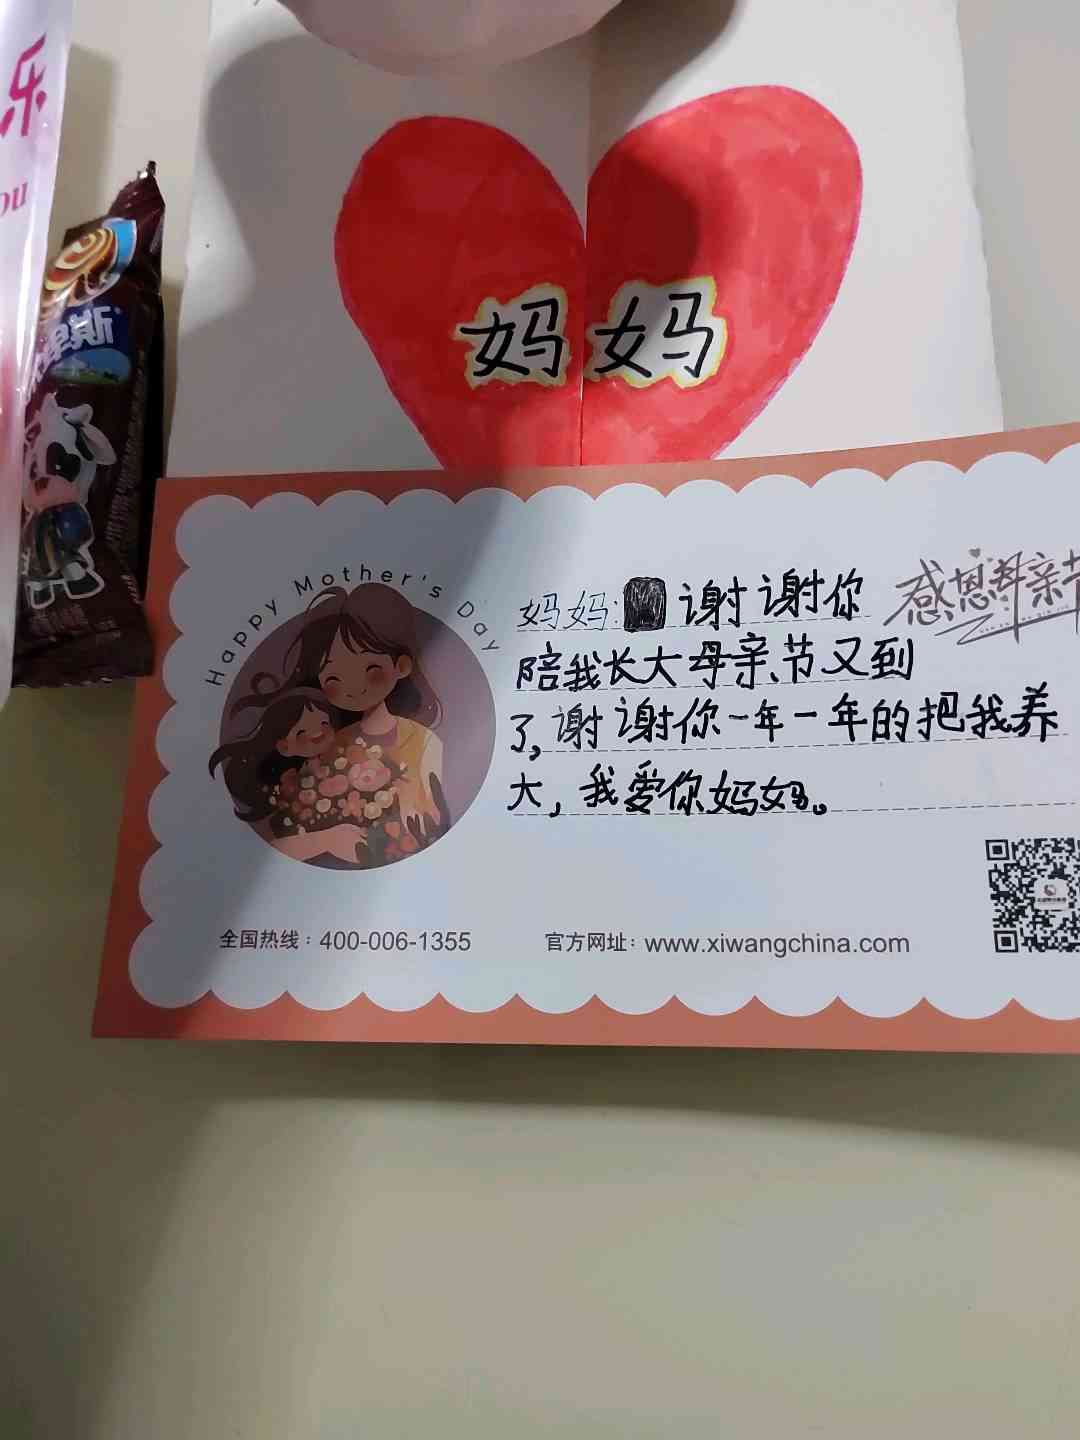 乐
ou
妈妈
Happy Mother's Day
感恩母亲节
妈妈: 谢谢你
陪我长大母亲节又到
了,谢谢你一年一年的把我养
大,我爱你妈妈。
全国热线:400-006-1355
官方网址:www.xiwangchina.com